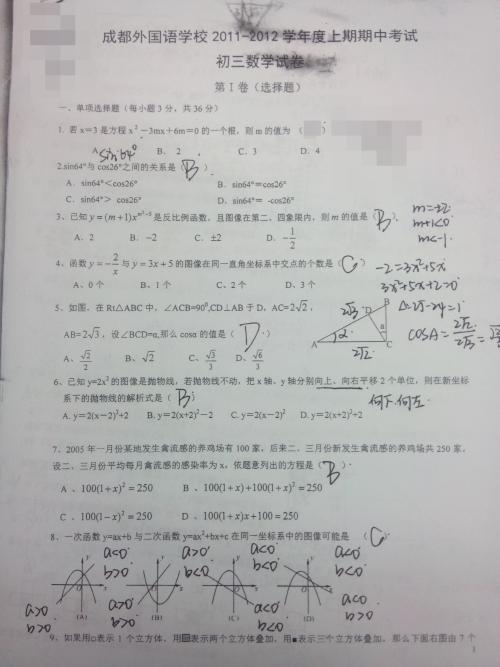 成都外国语学校 2011-2012 学年度上期期中考试
初三数学试卷
第 I 卷（选择题）
一、单项选择题（每小题 3 分，共 36 分）
1. 若 x=3 是方程 x²-3mx+6m=0 的一个根，则 m 的值为 （ ）
A B、 2 C. 3 D. 4
sin64°
2.sin64°与 cos26°之间的关系是（ B ）
A．sin64°＜cos26° B．sin64°=cos26°
C．sin64°＞ cos26° D．sin64°= -cos26°
3、已知 y=(m+1)x^(m²-5) 是反比例函数，且图像在第二、四象限内，则 m 的值是（ B ）、
m=±2
m+1<0
m<-1.
A、2 B、-2 C、±2 D、-1/2
4、函数 y=-2/x 与 y=3x+5 的图像在同一直角坐标系中交点的个数是（ C ）
-2=3x²+5x
A、0 个 B、1 个 C、2 个 D、3 个
3x²+5x+2=0
5、如图，在 Rt△ABC 中，∠ACB=90⁰,CD⊥AB 于 D，AC=2√2，
2√3 D B
Δ=25-24=1
AB=2√3，设∠BCD=a,那么 cosa 的值是（ D ）.
α a
A 2√2 C
cosA=2√2/2√3=
A、√2/2 B、√2 C、√3/3 D、√6/3
6、已知 y=2x² 的图像是抛物线，若抛物线不动，把 x 轴、y 轴分别向上、向右平移 2 个单位，则在新坐标
系下的抛物线的解析式是（ B ）
向下. 向左.
A. y=2(x－2)²+2 B. y=2(x+2)²－2 C. y=2(x－2)² D. y=2(x+2)²+2
7、2005 年一月份某地发生禽流感的养鸡场有 100 家，后来二、三月份新发生禽流感的养鸡场共 250 家，
设二、三月份平均每月禽流感的感染率为 x，依题意列出的方程是（ B ）.
A 、100(1+x)²=250 B 、100(1+x)+100(1+x)²=250
C 、100(1-x)²=250 D 、100(1+x)x+100=250
8、一次函数 y=ax+b 与二次函数 y=ax²+bx+c 在同一坐标系中的图像可能是 （ C ）
a<0 a>0 a<0 a<0
b>0 b<0 b<0 b<0
y x (A) y x (B) y x (C) y x (D)
a>0 a>0 a<0 a<0
b>0 b>0 b<0 b>0
9、如果用□表示 1 个立方体，用表示两个立方体叠加，用■表示三个立方体叠加，那么下面右图由 7 个
1